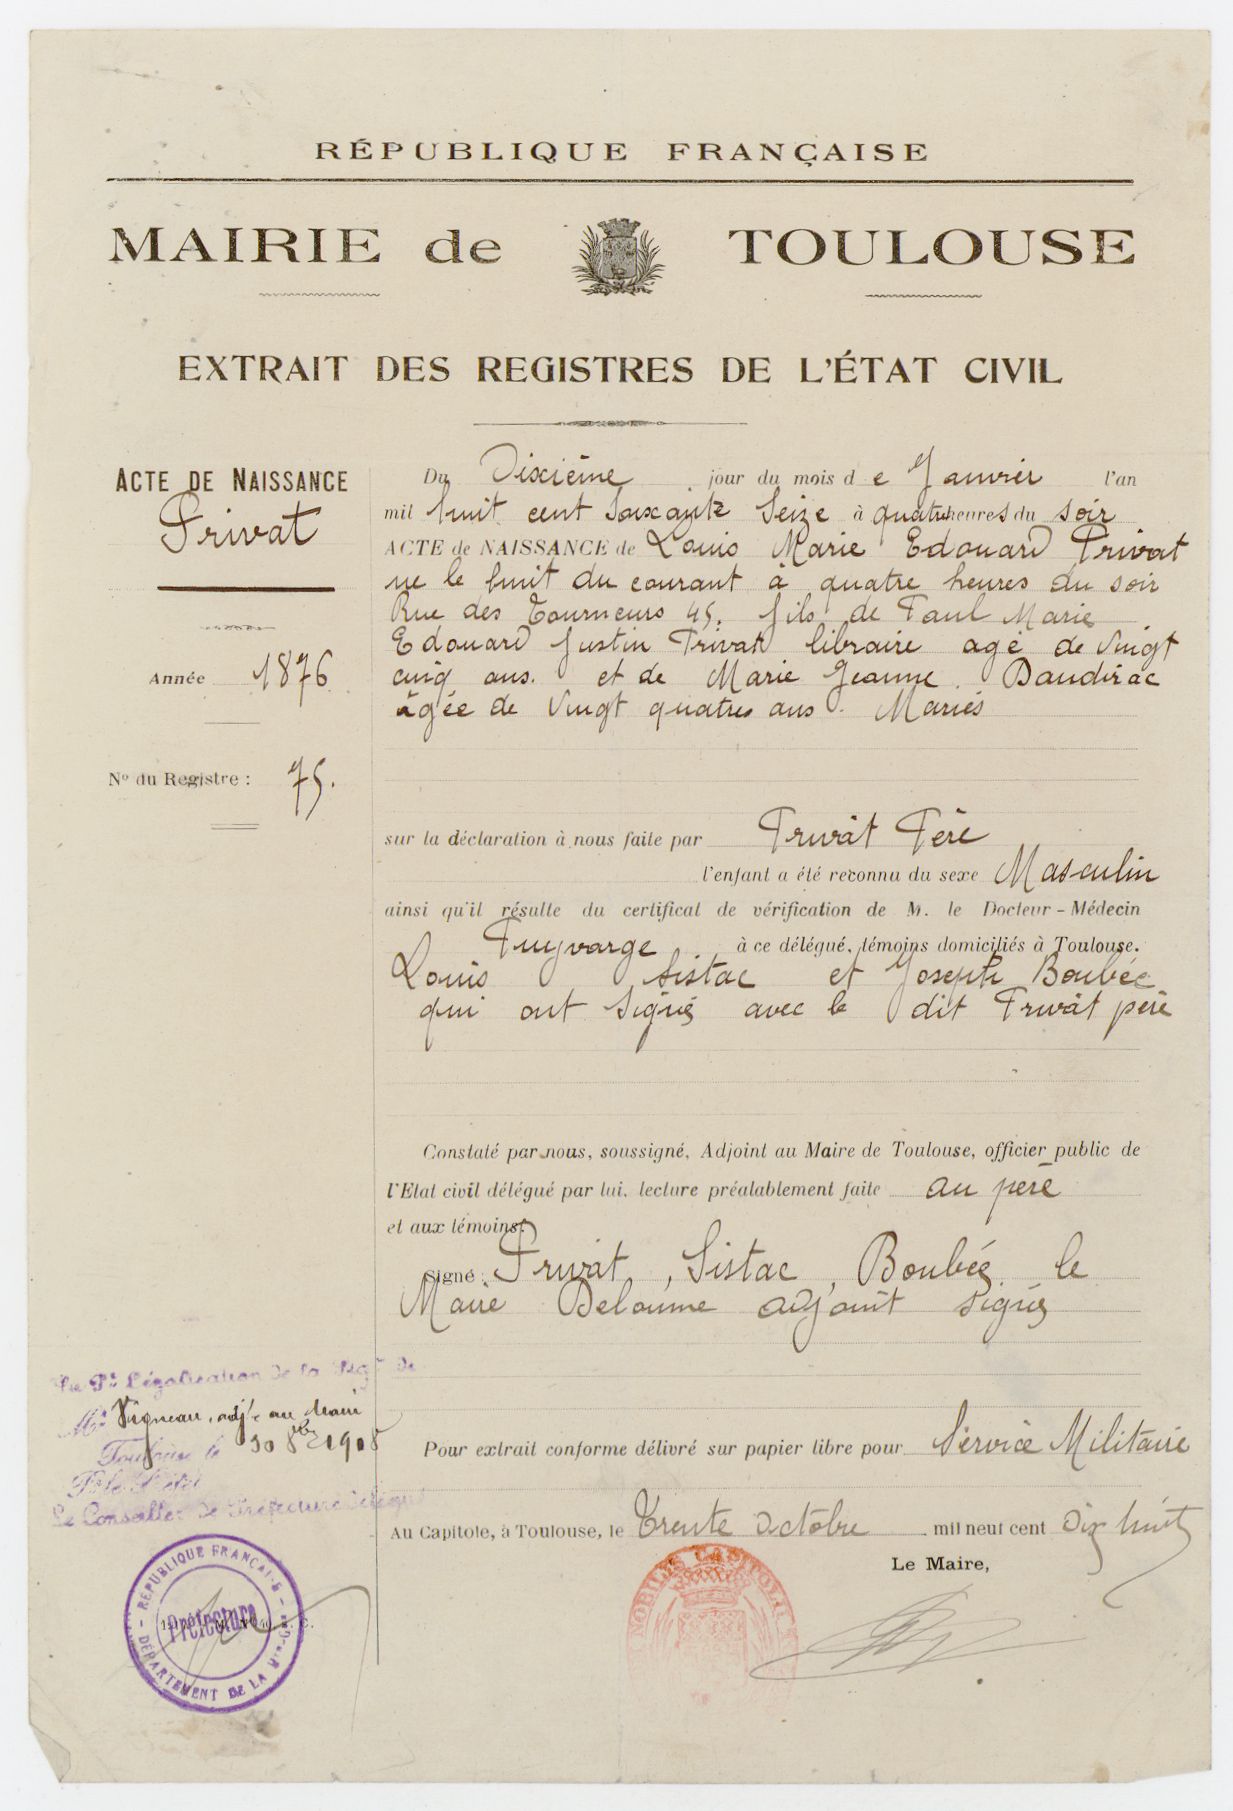 RÉPUBLIQUE FRANÇAISE
MAIRIE de TOULOUSE
EXTRAIT DES REGISTRES DE L'ÉTAT CIVIL
ACTE DE NAISSANCE
Privat
Année 1876
Nº du Registre : 75.
Du Dixième jour du mois de Janvier l'an
mil huit cent Soixante Seize à quatre heures du soir
ACTE de NAISSANCE de Louis Marie Edouard Privat
né le huit du courant à quatre heures du soir
Rue des Tourneurs 45. fils de Paul Marie
Edouard Justin Privat libraire agé de Vingt
cinq ans. et de Marie Jeanne Baudérac
âgée de Vingt quatres ans. Mariés
sur la déclaration à nous faite par Privât Père
l'enfant a été reconnu du sexe Masculin
ainsi qu'il résulte du certificat de vérification de M. le Docteur-Médecin
à ce délégué, témoins domiciliés à Toulouse.
Louis Sistac et Joseph Boubée
qui ont signés avec le dit Privât père
Constaté par nous, soussigné, Adjoint au Maire de Toulouse, officier public de
l'Etat civil délégué par lui, lecture préalablement faite au père
et aux témoins.
Signé : Privat, Sistac, Boubée, le
Maire Deloume adjoint signés
Vu Pr Légalisation de la Sigre de
Mr Vigneau, adjt au Maire
Toulouse le 30 8bre 1918
Le Conseiller de Préfecture délégué
Pour extrait conforme délivré sur papier libre pour Service Militaire
Au Capitole, à Toulouse, le Trente Octobre mil neuf cent Dix huit
Le Maire,
RÉPUBLIQUE FRANÇAISE
Préfecture
DÉPARTEMENT DE LA Hte-Gne